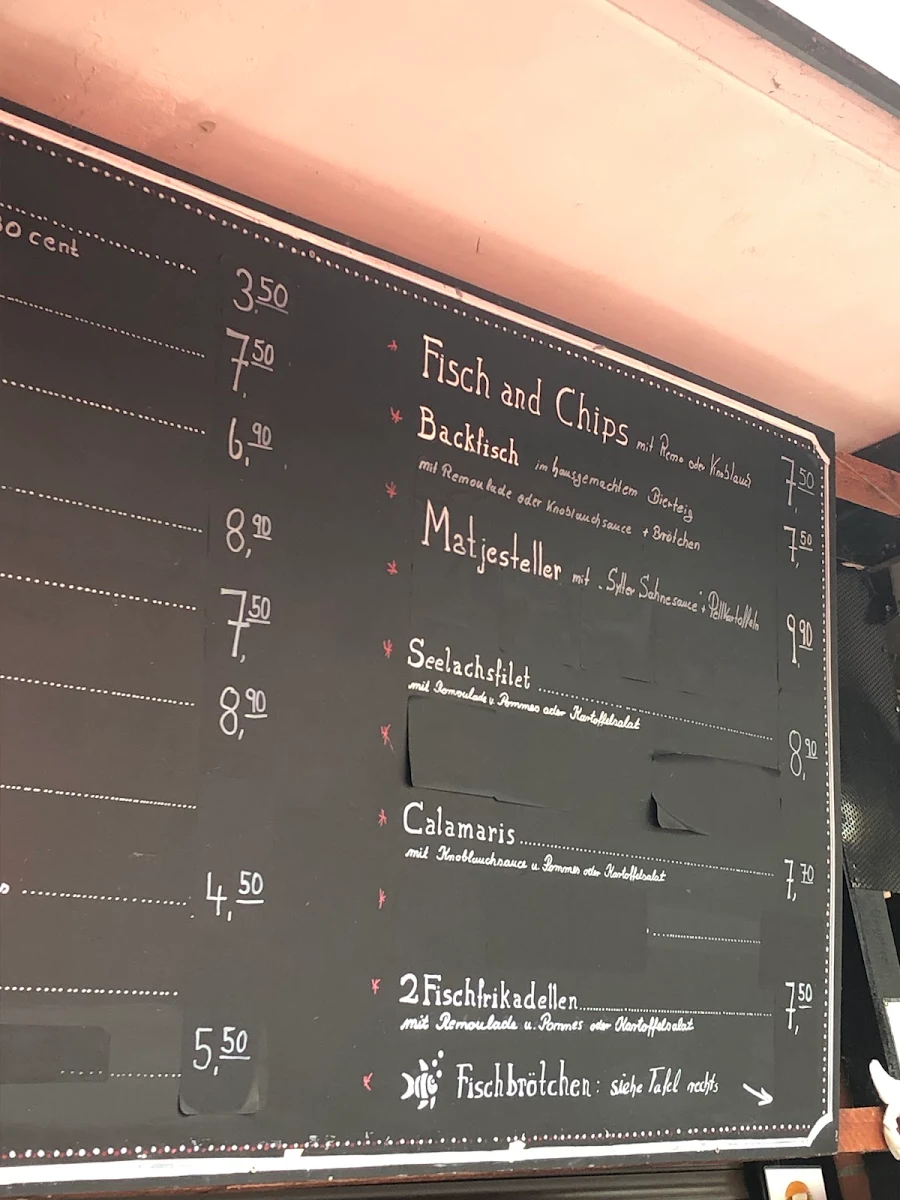 0 cent
3,50
7,50
6,90
8,90
7,50
8,90
4,50
5,50
Fisch and Chips mit Remo oder Knoblauch 7,50
Backfisch im hausgemachtem Bierteig
mit Remoulade oder Knoblauchsauce + Brötchen 7,50
Matjesteller mit "Sylter Sahnesauce" + Pellkartoffeln 9,90
Seelachsfilet 8,90
mit Remoulade u. Pommes oder Kartoffelsalat
Calamaris 7,70
mit Knoblauchsauce u. Pommes oder Kartoffelsalat
2 Fischfrikadellen 7,50
mit Remoulade u. Pommes oder Kartoffelsalat
Fischbrötchen: siehe Tafel rechts